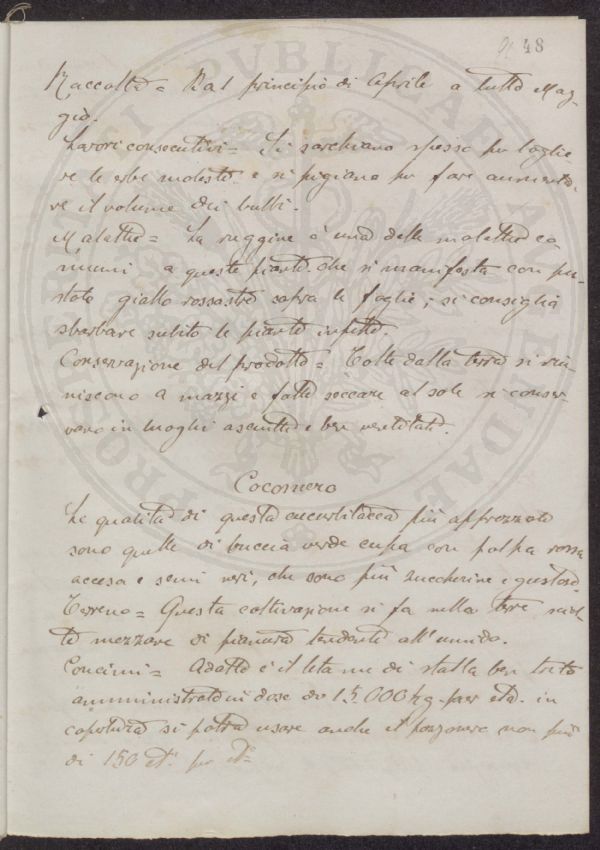 48
Raccolta = Dal principio di Aprile a tutto Mag-
gio.
Lavori consecutivi = Si sarchiano spesso per toglie-
re le erbe moleste e si pigiano per fare aumenta-
re il volume dei bulbi.
Malattie = La ruggine è una delle malattie co-
muni a queste piante che si manifesta con pu-
stole giallo rossastre sopra le foglie; si consiglia
sbarbare subito le piante infette.
Conservazione del prodotto = Tolte dalla terra si riu-
niscono a mazzi e fatte seccare al sole si conser-
vano in luoghi asciutti e ben ventilati.
Cocomero
Le qualità di questa cucurbitacea più apprezzate
sono quelle di buccia verde cupa con polpa rossa
accesa e semi neri, che sono più zuccherine e gustose.
Terreno = Questa coltivazione si fa nelle terre sciol-
te mezzane di pianura tendenti all'umido.
Concimi = Adatto è il letame di stalla ben trito
amministrato in dose di 15.000 kg per età. in
copertura si potrà usare anche il pozzonero non più
di 150 et. per et.